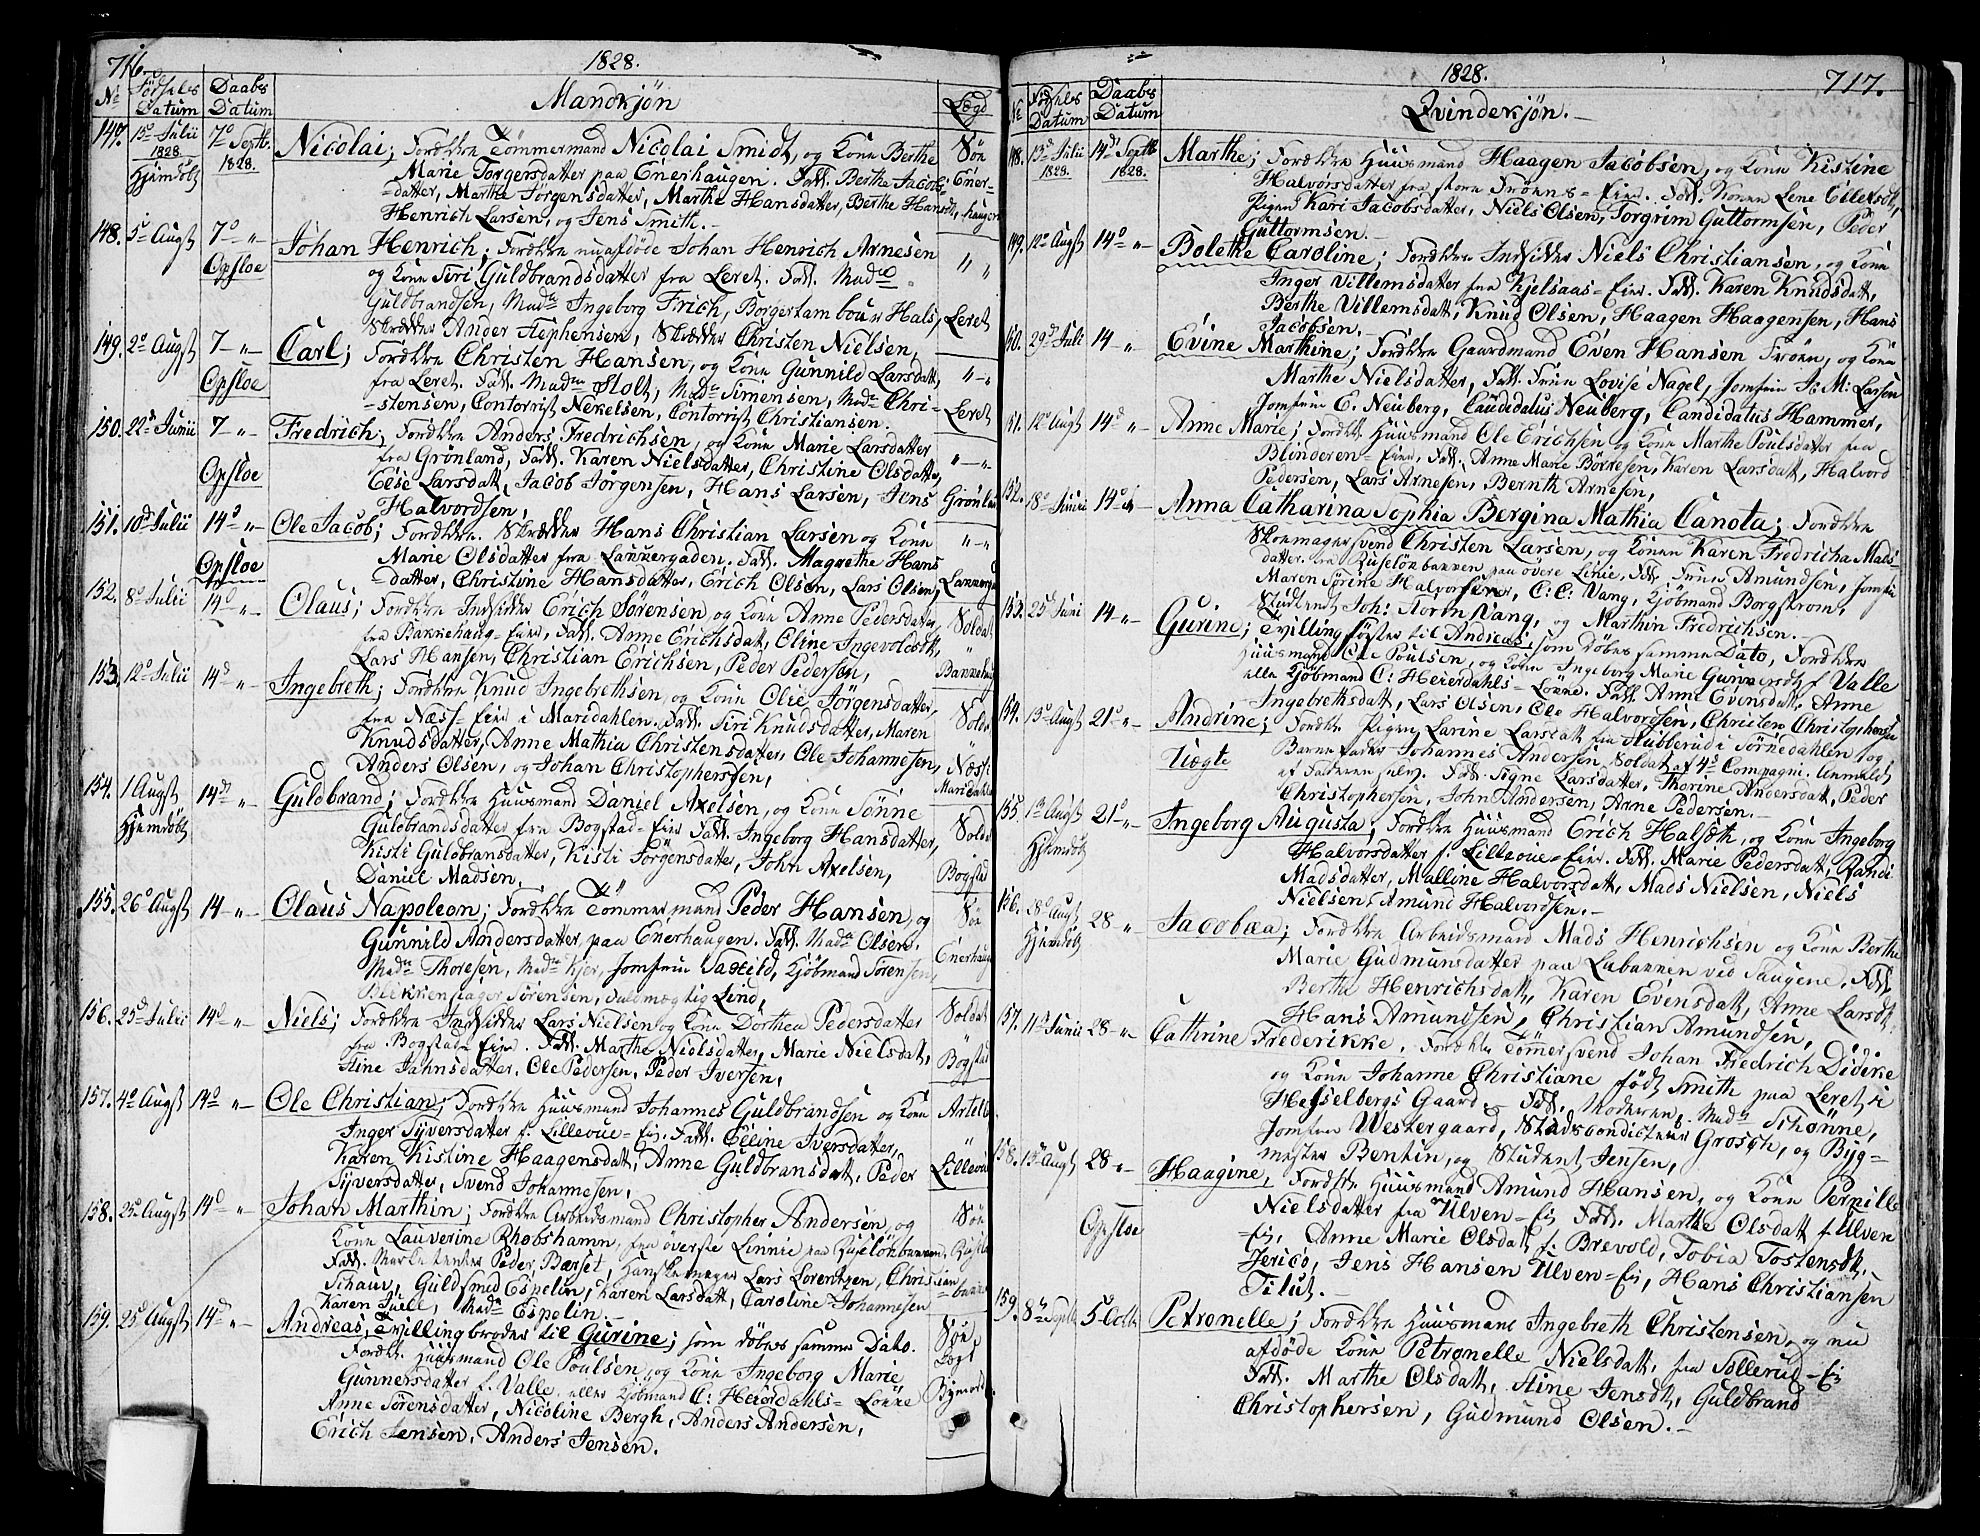 716.
1828.
No Födsels Datum Daabs Datum Mandkjøn Lægd
147. 15d Julii 1828 Hjemdöbt 7d Septb. 1828. Nicolai; Forældre Tömmermand Nicolai Smidt, og Kone Berthe Söe
Marie Torgersdatter paa Enerhaugen. Fadd. Berthe Jacobs- Ener-
-datter, Marthe Jørgensdatter, Marthe Hansdatter, Berthe Hansdt, haugen
Henrich Larsen, og Jens Smith.
148. 5d Augst 7d " Johan Henrich; Forældre nu afdöde Johan Henrich Arnesen
Opsloe og Kone Siri Guldbrandsdatter fra Leret. Fadd. Made " "
Guldbrandsen, Made Ingeborg Frich, Borgertambour Hals, Leret
Skrædder Ander Stephensen, Skrædder Christen Nielsen,
149. 2d Augst 7 " Carl; Forældre Christen Hansen, og Kone Gunnild Larsdatt,
Opsloe fra Leret. Fadd. Madm Stolt, Mde Simensen, Made Chri- "-"
-stensen, Contorrist Nekelsen, Contorrist Christiansen. Leret
150. 22d Junii 7 " Fredrich; Forældre Anders Fredrichsen, og Kone Marie Larsdatter
Opsloe fra Grönland, Fadd. Karen Nielsdatter, Christine Olsdatter, "-"
Else Larsdatt, Jacob Jørgensen, Hans Larsen, Jens Grönland
Halvordsen,
151. 10d Julii 14d " Ole Jacob; Forældre. Skrædder Hans Christian Larsen og Kone "-"
Opsloe Marie Olsdatter fra Lannergaden. Fadd. Magrethe Hans
datter, Christine Hansdatter, Erich Olsen, Lars Olsen,
152. 8d Julii 14d " Olaus; Forældre Indsidder Erich Sörensen og Kone Anne Pedersdatter, Soldat
fra Bakkehaug-Eier, Fadd. Anne Erichsdatt, Eline Ingevoldsdt, "
Lars Hansen, Christian Erichsen, Peder Pedersen,
153. 12d Julii 14d " Ingebreth; Forældre Knud Ingebrethsen, og Kone Olie Jørgensdatter,
fra Næss-Eier i Maridahlen. Fadd. Siri Knudsdatter, Maren Sold.
Knudsdatter, Anne Mathia Christensdatter, Ole Johannesen, Næss i
Anders Olsen, og Johan Christophersen, Maridahlen
154. 1 Augst 14d " Guldbrand; Forældre Huusmand Daniel Axelsen, og Kone Sönne
Hjemdöbt Guldbrandsdatter fra Bogstad-Eier Fadd. Ingeborg Hansdatter, Soldat
Kisti Guldbransdatter, Kisti Jørgensdatter, John Axelsen, Bogstad
Daniel Madsen.
155. 26d Augst 14 " Olaus Napoleon; Forældre Tömmermand Peder Hansen, og Söe
Gunnild Andersdatter, paa Enerhaugen. Fadd. Made Olsen,
Made Thoresen, Made Kjer, Jomfrue Saxild, Kjöbmand Sörensen, Enerhaugen
Blikkenslager Sörensen, Fuldmægtig Lind,
156. 25d Julii 14d " Niels; Forældre Indsidder Lars Nielsen og Kone Dorthea Pedersdatter Soldat
fra Bogstad-Eier. Fadd. Marthe Nielsdatter, Marie Nielsdat,
Stine Jahnsdatter, Ole Pedersen, Peder Iversen, Bogstad
157. 4d Augst 14d " Ole Christian; Forældre Huusmand Johannes Guldbrandsen og Kone
Inger Syversdatter f. Lillevue-Ei. Fadd. Elline Iversdatter,
Karen Kistine Haagensdatt, Anne Guldbransdatt, Peder
Syversdatter, Svend Johannesen,
158. 25d Augst 14d " Johan Marthin; Forældre Arbeidsmand Christopher Andersen, og Söe
Kone Lauverine Rhobshamn, fra överste Linnie paa Ruselökbannen,
Fadd. Peder Barset, Hanskemager Lars Lorentzen, Christian
Schaus, Guldsmed Espelin, Karen Larsdatt, Caroline Johannesen
Karen Juell, Made Espelin.
159. 25d Augst 14d " Andreas, Tvillingbroder til Gurine; som döbes samme Dato. Söe
Foræld. Huusmand Ole Poulsen, og Kone Ingeborg Marie Lægd
Gunnersdatter f. Valle, eller Kjöbmand C: Heierdahls-Lökke Bymark
Anne Sörensdatter, Nicoline Bergh, Anders Andersen,
Erich Jensen, Anders Jensen.
1828.
717.
No Födsels Datum Daabs Datum Qvindekjön.
148. 13d Julii 1828. 14d Septb 1828. Marthe; Forældre Huusmand Haagen Jacobsen, og Kone Kistine
Halvorsdatter fra store Frøens-Eier. Fad. Konen Lene Ellefsdt,
Pigen Kari Jacobsdatter, Niels Olsen, Torgrim Guttormsen, Peder
Guttormsen.
149. 12d Augst 14d " Bolethe Caroline; Forældre Indsidder Niels Christiansen, og Kone
Inger Villemsdatter fra Kjelsaas-Eier. Fadd. Karen Knudsdatt,
Berthe Villemsdatt, Knud Olsen, Haagen Haagensen, Hans
Jacobsen.
150. 29d Juli 14 " Evine Marthine; Forældre Gaardmand Even Hansen Frøen, og Kone
Marthe Nielsdatter, Fadd. Frue Lovise Nagel, Jomfrue S: M: Larsen
Jomfrue E. Neuberg, Candidatus Neuberg, Candidatus Hammer,
151. 12d Augst 14d " Anne Marie; Foræld. Huusmand Ole Erichsen og Kone Marthe Poulsdatter fra
Blinderen-Eier, Fad. Anne Marie Börresen, Karen Larsdatt, Halvord
Pedersen, Lars Arnesen, Bernth Arnesen,
152. 18d Junii 14d " Anna Catharina Sophia Bergina Mathia Canota; Forældre
Skomagersvend Christen Larsen, og Konen Karen Fredricha Mads-
datter. fra Ruselönbannen paa övere Linie, Fadd. Frue Amundsen, Jomfru
Maren Sörine Halvorsen, C: C: Vang, Kjöbmand Borgström,
Student Joh: Noren Vang, og Marthin Fredrichsen.
153. 25d Juni 14 " Gurine; Tvillingsöster til Andreas, som döbes samme Dato, Forældre
Huusmand Ole Poulsen, og Kone Ingeborg Marie Gunnersdtr f. Valle
eller Kjöbmand C: Heierdahls-Lönne. Fadd. Anne Evensdatt, Anne
Ingebrethsdatt, Lars Olsen, Ole Halvordsen, Christen Christophersen
154. 13d Augst 21d " Andrine; Forældre Pigen Larine Larsdatt fra Stubberud i Sörkedahlen og
Uægte Barnefader Johannes Andersen Soldat af 4d Compagni. Anmeldt
af Faderen selv. Fadd. Signe Larsdatter, Thorine Andersdatt, Peder
Christophersen, John Andersen, Arne Pedersen.
155. 1d Augst 21d " Ingeborg Augusta; Forældre Huusmand Erich Halsdth, og Kone Ingeborg
Hjemdöbt Halvorsdatter f. Lillevue-Eier. Fadd. Marie Pedersdatt, Randi
Madsdatter, Malline Halvorsdatt, Mads Nielsen, Niels
Nielsen, Amund Halvordsen.
156. 28d Augst 28 " Jacobæa; Forældre Arbeidsmand Mads Henrichsen og Kone Berthe
Hjemdöbt Marie Gudmunsdatter paa Lubannen ved Saugene, Fadd.
Berthe Henrichsdatt, Karen Evensdatt, Anne Larsdt,
Hans Amundsen, Christian Amundsen,
157. 11d Junii 28 " Cathrine Frederikke. Forældre Tömmersvend Johan Fredrich Didrike
og Kone Johanne Christiane födt Smith paa Leret i
Hesselbergs Gaard. Fadd. Moderen, Made Schönne,
Jomfrue Westergaard, Stadsconducteur Grosch, og Byg-
mester Bentin, og Student Jensen,
158. 15d Augst 28 " Haagine, Forældre Huusmand Amund Hansen, og Kone Pernille
Opsloe Nielsdatter fra Ulven-Ei Fadd. Marthe Olsdatt f. Ulven
-Ei, Anne Marie Olsdatt f. Brevold, Tobia Tostensdtt.
Jerico, Jens Hansen Ulven-Ei, Hans Christiansen
Tilut.
159. 8d Septb 5d Octb Petronelle; Forældre Huusmand Ingebreth Christensen, og nu
afdöde Kone Petronelle Nielsdatt, fra Sollerud-Ei
Fadd. Marthe Olsdatt, Stine Jensdt, Guldbrand
Christophersen, Gudmund Olsen.